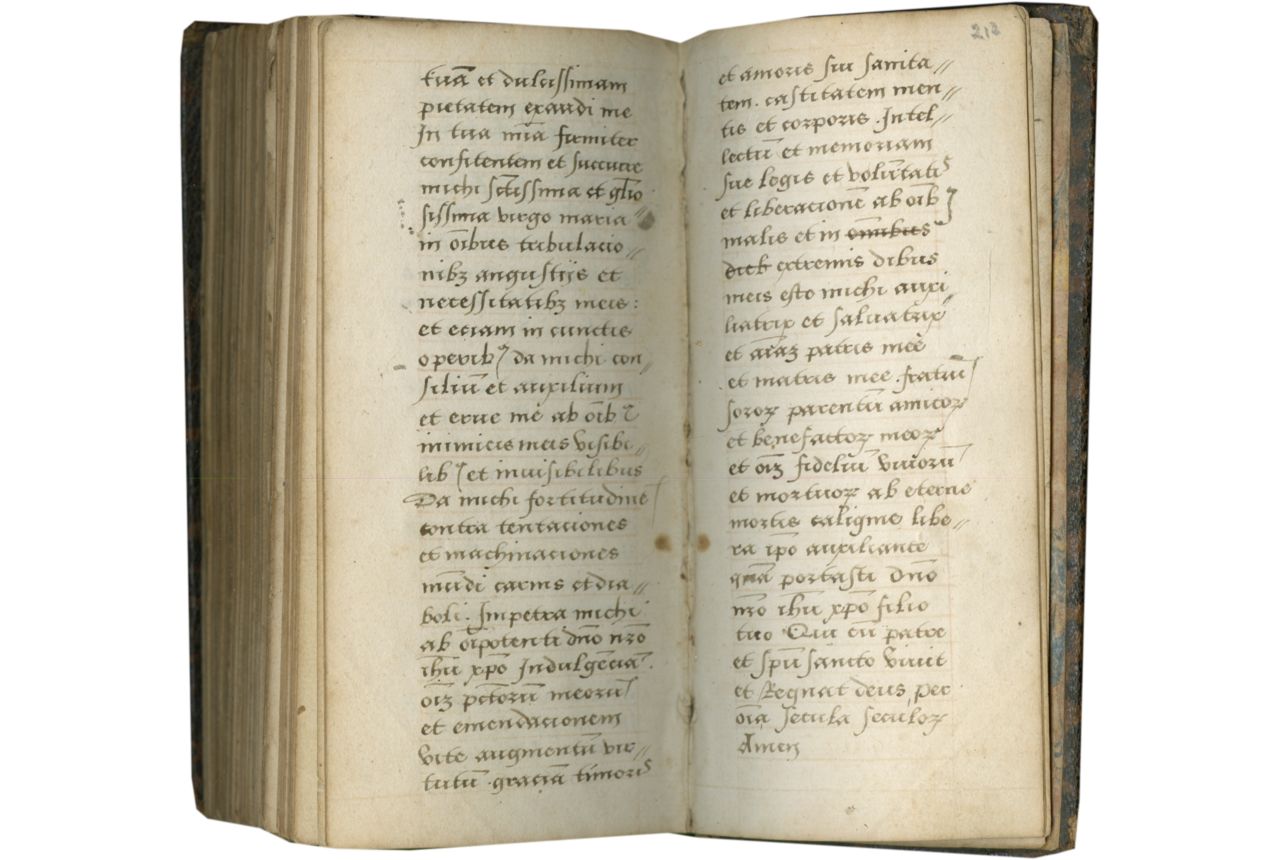 tuā et dulcissimam
pietatem exaudi me
In tua mīa firmiter
confitentem et succurre
michi sctīssima et glīo
sissima virgo maria
in oībres tribulacio//
nibȝ angustijs et
necessitatibȝ meis :
et eciam in cunctis
operibꝰ da michi con/
silium et auxilium
et erue me ab oībꝰ
inimicis meis visibi//
libꝰ et inuisibilibus
Da michi fortitudinē
contra tentaciones
et machinaciones
mūdi carnis et dia//
boli. Impetra michi
ab oīpotenti dn̄o nr̄o
ihū xp̄o Indulgēciā.
oīȝ pctōrū meorū
et emendacionem
vite augmentū vir//
tutū . graciā timoris
212
et amoris sui sanita//
tem. castitatem men//
tis et corporis. Intel//
lectū et memoriam
sue legis et volūtatis
et liberacionē ab oībꝰ
malis et in omnibus
dieb extremis dibus
meis esto michi auxi//
liatrix et saluatrix
et aīaȝ patris meē
et matris mee . fratrū
sororꝝ parentū amicorꝝ
et benefactorꝝ meorꝝ
et oīȝ fideliū viuorū
et mortuorꝝ ab eterne
mortis caligine libe//
ra ip̄o auxiliante
quē portasti dn̄o
nr̄o ihū xp̄o filio
tuo Qui cū patre
et spū sancto viuit
et Regnat deus per
oīa secula seculorꝝ
Amen